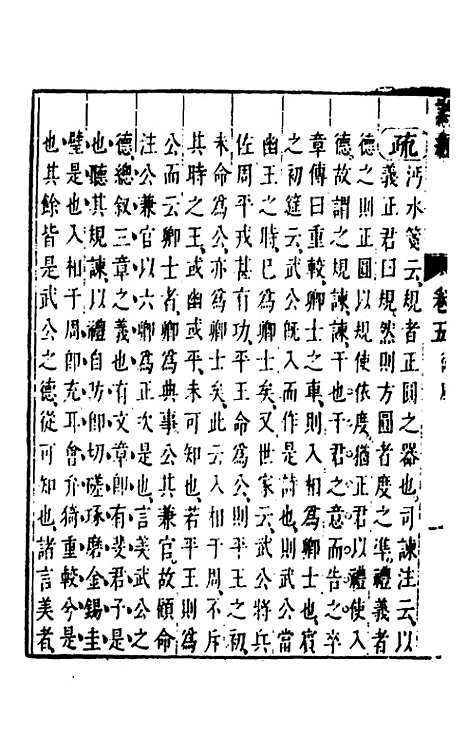 疏沔水箋云規者正圓之器也可諫注云以
義正君曰規然則方圓者度之準禮義者
德之則正圓以規使依度猶正君以禮使入
德故謂之規諫諫干也干君之意而告之卒
章傳曰重較卿士之車則入相爲卿士也賓
之初筵云武公旣入而作是詩也則武公當
幽王之時已爲卿士矣又世家云武公將兵
佐周平戎甚有功平王命爲公則平王之初
未命爲公亦爲卿士矣此云入相于周不斥
其時之王或幽或平未可知也若平王則爲
公而云卿士者卿爲典事公其兼官故顧命
注公兼官以六卿爲正次是也言美武公之
德總叙三章之義也有文章卽有斐君子是
也聽其規諫以禮自防卽切磋琢磨金錫圭
璧是也入相于周卽充耳會弁猗重較兮是
也其餘皆是武公之德從可知也諸言美者
卷五